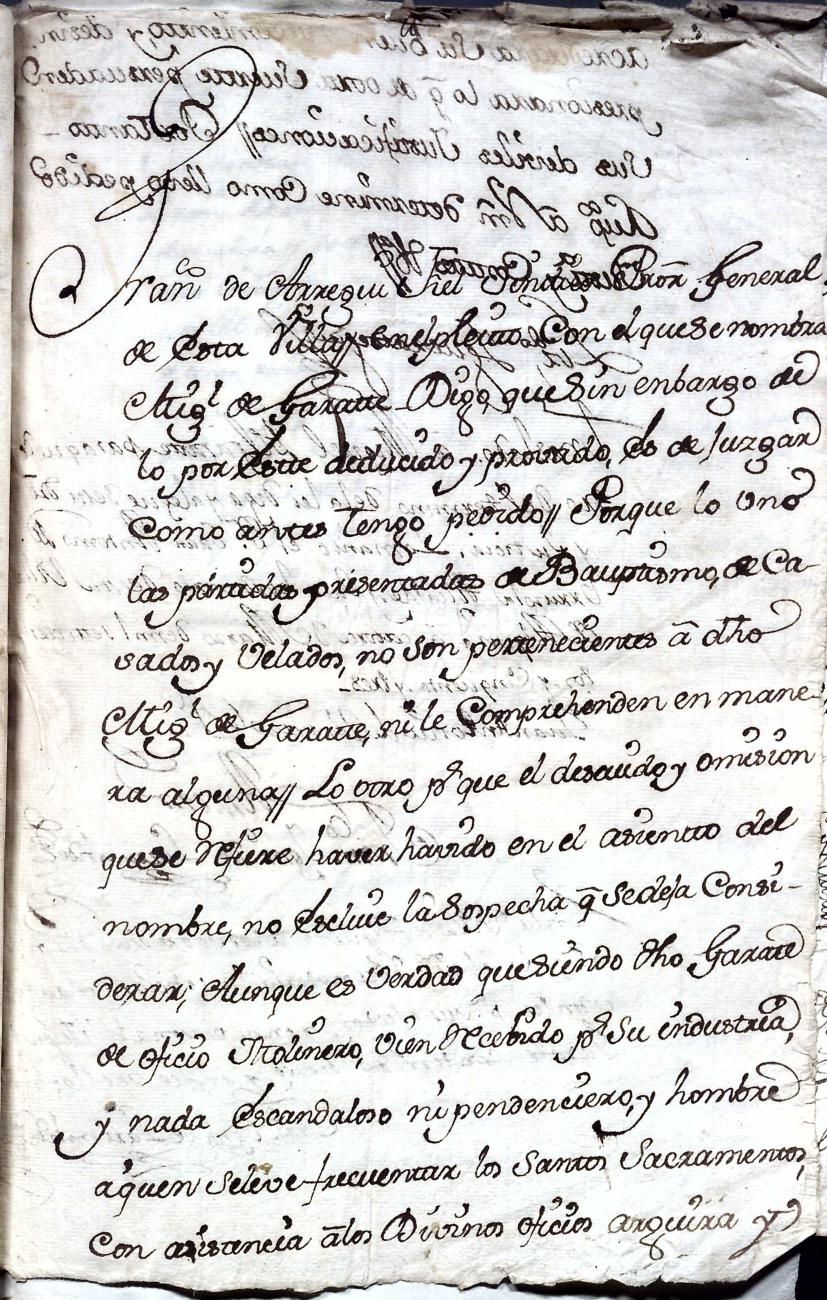 Fran.co de Arregui Fiel Sindico Pror. General
de Esta Villa, en el pleyto, Con el que se nombra
Mig.l de Garatte Digo, que Sin embargo de
lo por Este deducido y provado, Es de Juzgar
Como antes tengo pedido// Porque lo uno
las partidas presentadas de Bauptismo, de Ca-
sados y Velados, no son pertenecientes â dho
Mig.l de Garatte, ni le Comprehenden en mane-
ra alguna// Lo otro p.r que el descuido y omision
que se Refiere haver havido en el asientto del
nombre, no Escluie la Sospecha q̄ se deja Consi-
derar; Aunque es Verdad que Siendo dho Garatte
de oficio Molinero, vien Recebido p.r Su industria,
y nada Escandaloso ni pendenciero, y hombre
aquen se le ve frecuentar los Santos Sacramentos,
Con asistencia âlos Divinos oficios arguira y